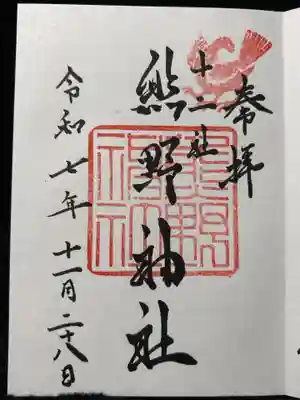 奉拝
十二社
熊野神社
令和七年十一月二十八日
熊野神社